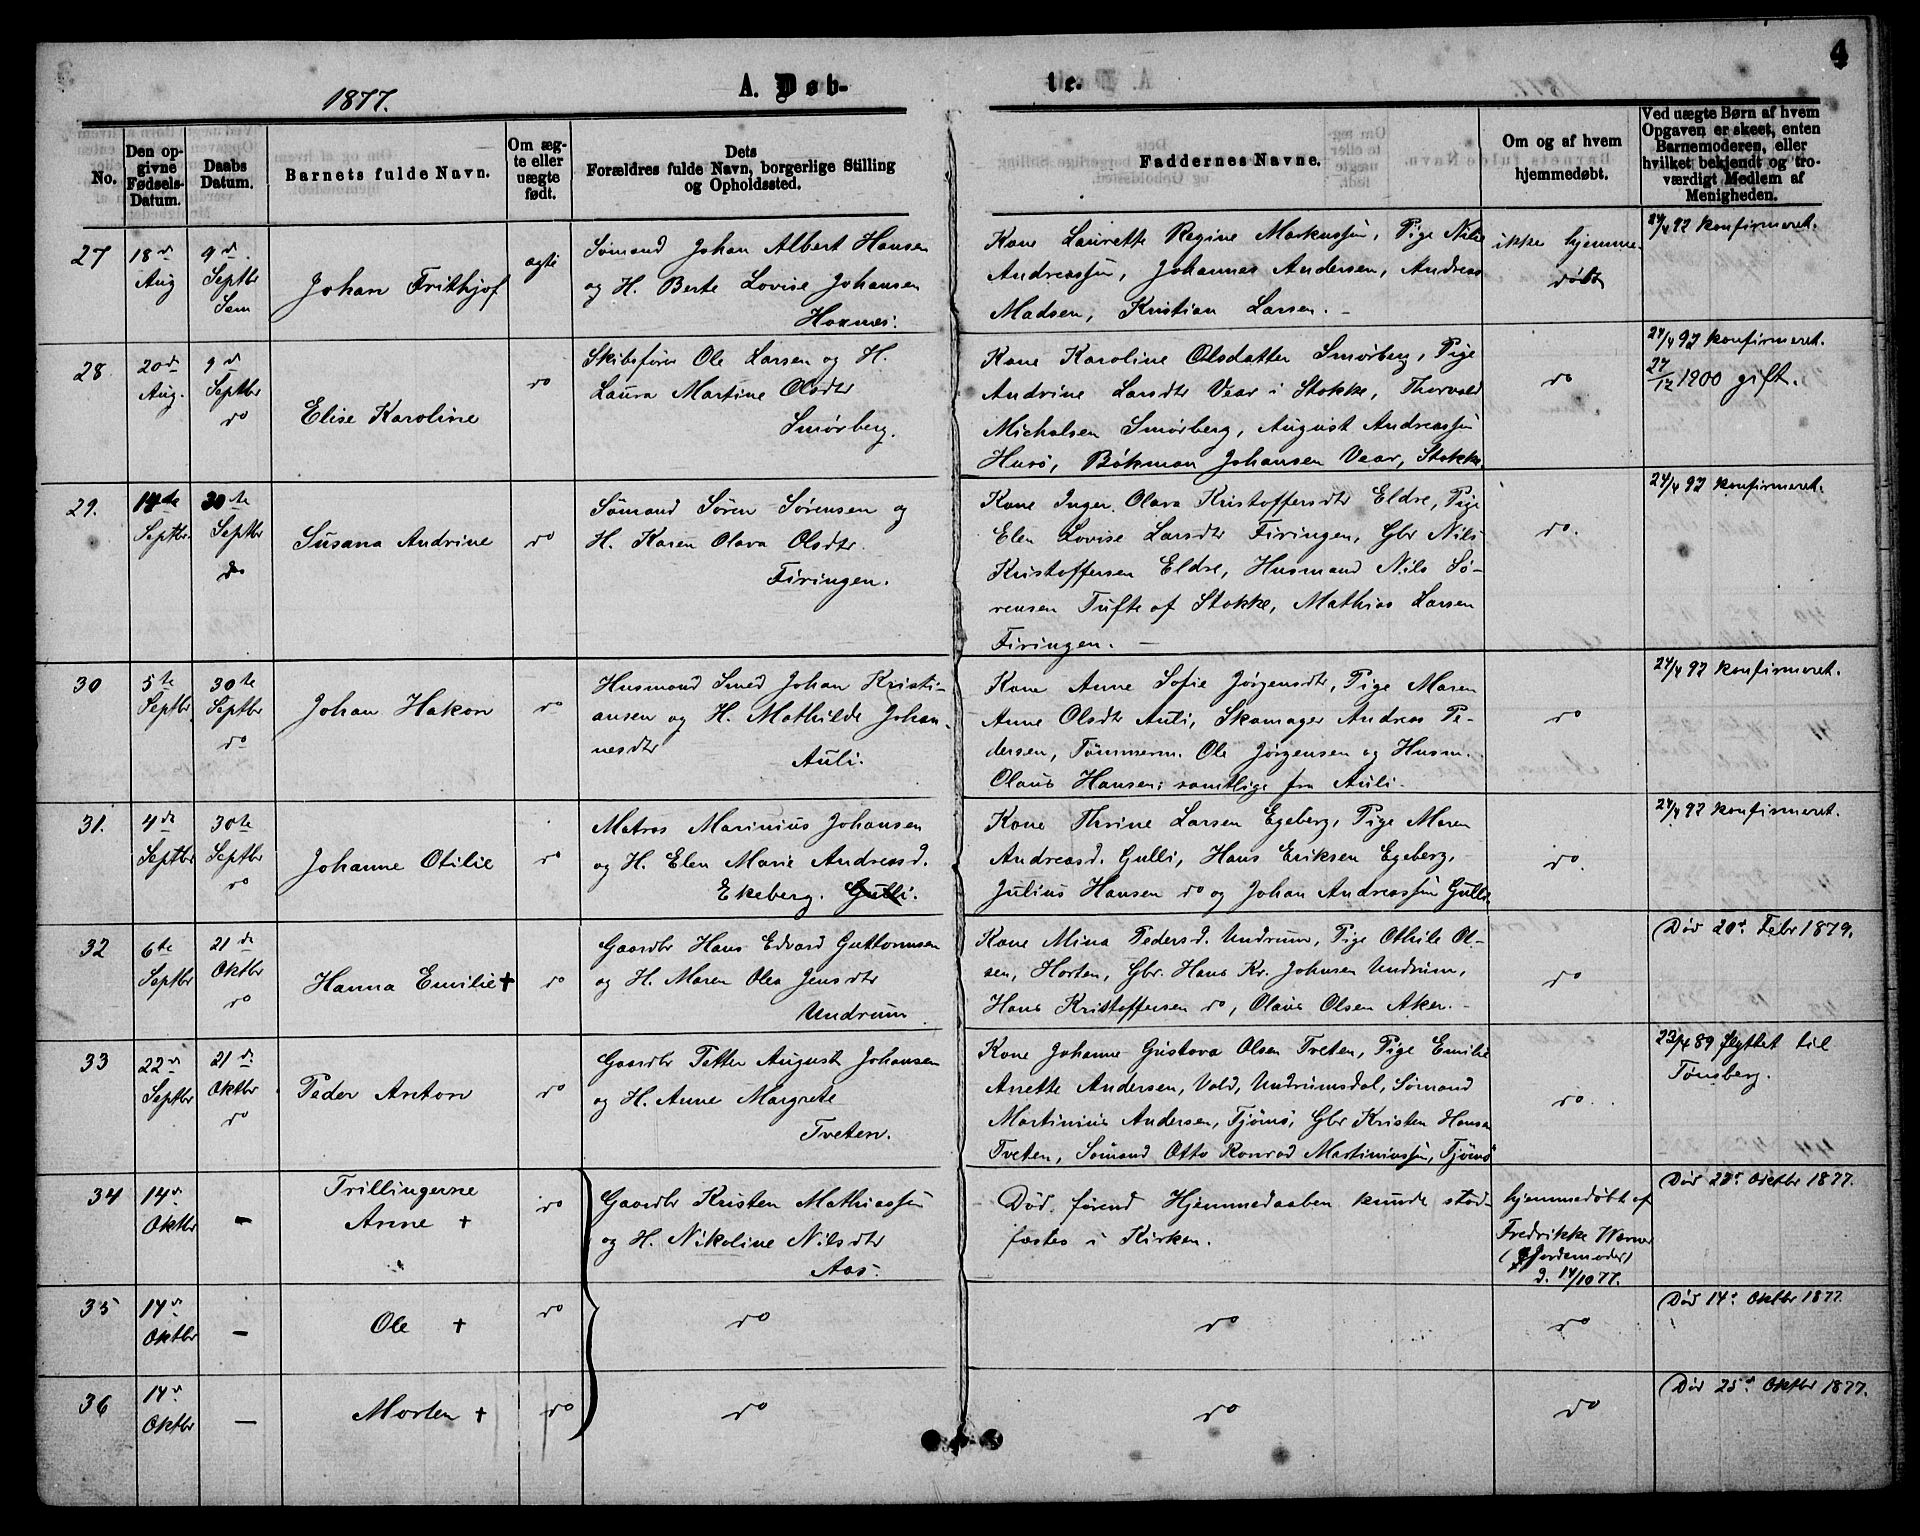 4
1877.
A. Døb-
te.
No.
Den op-
givne
Fødsels-
Datum.
Daabs
Datum.
Barnets fulde Navn.
Om æg-
te eller
uægte
født.
Dets
Forældres fulde Navn, borgerlige Stilling
og Opholdssted.
Faddernes Navne.
Om og af hvem
hjemmedøbt.
Ved uægte Børn af hvem
Opgaven er skeet, enten
Barnemoderen, eller
hvilket bekjendt og tro-
værdigt Medlem af
Menigheden.
27
18d
Aug
9d
Septbr
Sem
Johan Frithjof
ægte
Sømand Johan Albert Hansen
og H. Berte Lovise Johansen
Kone Laurette Regine Markussen, Pige Nilie
Andreassen, Johannes Andersen, Andreas
Madsen, Kristian Larsen. -
ikke hjemme-
døbt
24/4 92 konfirmeret.
28
20d
Aug.
9d
Septbr
do
Elise Karoline
do
Skibsfører Ole Larsen og H.
Laura Martine Olsdtr
Smørberg.
Kone Karoline Olsdatter Smørberg, Pige
Andrine Larsdtr Vear i Stokke, Thorvald
Michalsen Smørberg, August Andreassen
Husö, Bökman Johansen Vear, Stokke
do
24/4 92 konfirmeret.
27/12 1900 gift.
29.
14de
Septbr.
30te
Septbr
do
Susana Andrine
do
Sömand Sören Sørensen og
H. Karen Olava Olsdtr.
Firingen.
Kone Inger Olava Kristoffersdtr Eldre, Pige
Elen Lovise Larsdtr Firingen, Gbr Nils
Kristoffersen Eldre, Husmand Nils Sö-
rensen Tufte af Stokke, Mathias Larsen
Firingen. -
do.
24/4 92 konfirmeret.
30
5te
Septbr
30te
Septbr
do
Johan Hakon
do
Husmand Smed Johan Kristi-
ansen og H. Mathilde Johan-
nesdtr
Auli.
Kone Anne Sofie Jørgensdtr, Pige Maren
Anne Olsdtr Auli, Skomager Andreas Pe-
dersen, Tömmerm. Ole Jørgensen og Husm.
Olaus Hansen; samtlige fra Auli.
do
24/4 92 konfirmeret.
31.
4de
Septbr
30te
Septbr
do
Johanne Otilie
do
Matros Marinius Johansen
og H. Elen Marie Andreasd.
Ekeberg. Gulli.
Kone Thrine Larsen Egeberg, Pige Maren
Andreasd. Gulli, Hans Eriksen Egeberg,
Julius Hansen do og Johan Andreassen Gulli
do.
24/4 92 konfirmeret.
32
6te
Septbr
21de
Oktbr
do
Hanna Emilie +
do
Gaardbr Hans Edvard Guttormsen
og H. Maren Olea Jensdtr
Undrum
Kone Mina Pedersd. Undrum, Pige Othile Ol-
sen, Horten, Gbr. Hans Kr. Johnsen Undrum,
Hans Kristoffersen do, Olaus Olsen Aker. -
do
Död 20d Febr 1879.
33
22d
Septbr
21de
Oktbr
do
Peder Anton
do
Gaardbr Petter August Johansen
og H. Anne Margrete
Tveten.
Kone Johanne Gustava Olsen Tveten, Pige Emilie
Anette Andersen, Vold, Undrumsdal, Sømand
Martinius Andersen, Tjömö, Gbr Kristen Hansen
Tveten, Sömand Otto Konrad Martiniussen, Tjömö
do.
23/4 89 flyttet til
Tønsberg.
34
14d
Oktbr
-
Trillingerne
Anne +
do
Gaardbr Kristen Mathiassen
og H. Nikoline Nilsdtr
Aas.
Död förend Hjemmedaaben kunde stad-
fæstes i Kirken.
hjemmedøbt af
Fredrikke Werner
(Jordemoder)
d. 14/10 77.
35
14d
Oktbr
-
Ole +
do
do
do
do
Död 14d Oktbr 1877.
36
14d
Oktbr
-
Morten +
do
do
do
do
Död 25d Oktbr 1877.